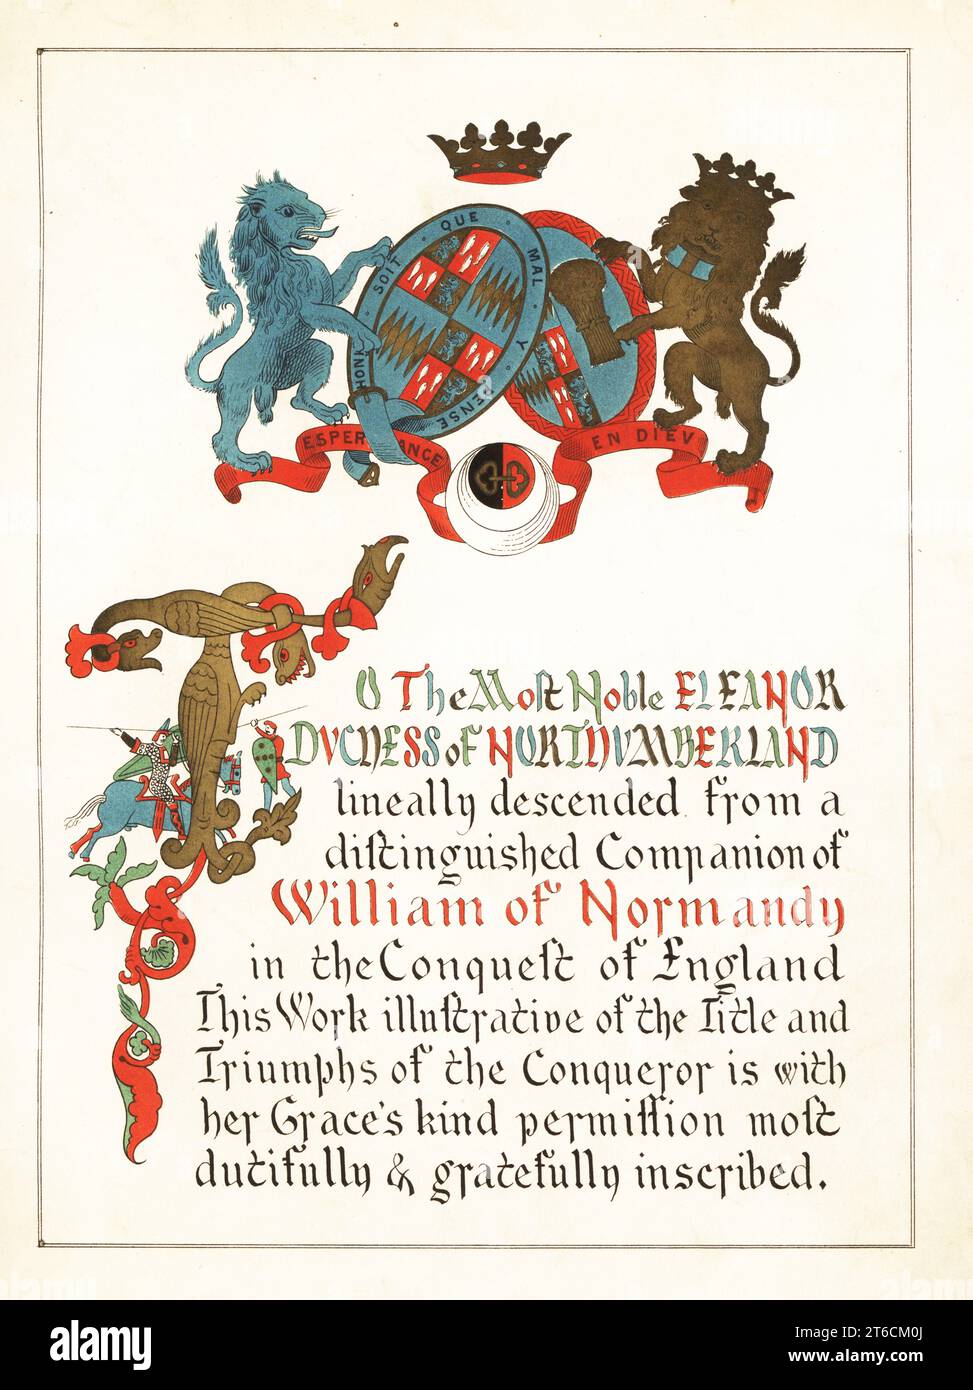 HONI · SOIT · QUE · MAL · Y · PENSE
ESPERANCE EN DIEV
TO The Most Noble ELEANOR
DUCHESS of NORTHUMBERLAND
lineally descended from a
distinguished Companion of
William of Normandy
in the Conquest of England
This Work illustrative of the Title and
Triumphs of the Conqueror is with
her Grace's kind permission most
dutifully & gratefully inscribed.
alamy
Image ID: 2T6CM0J
www.alamy.com